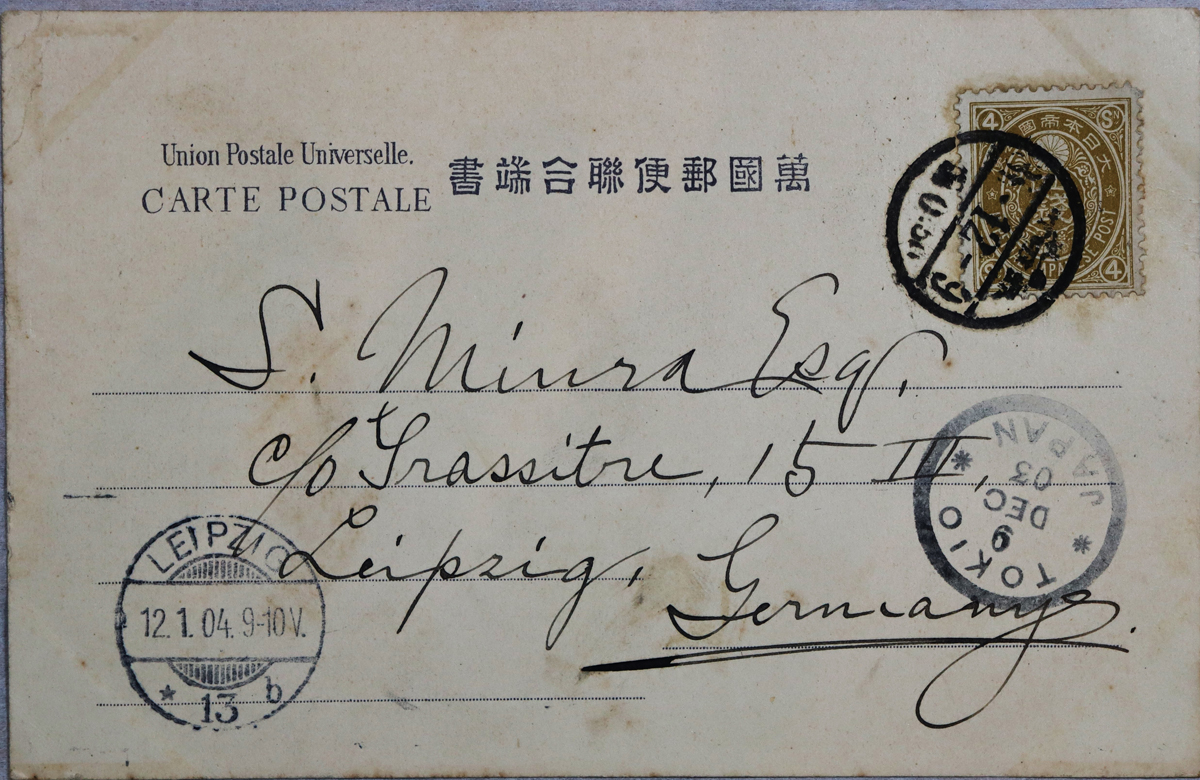 Union Postale Universelle.
CARTE POSTALE
書端合聯便郵國萬
4 SN
大日本帝國
POST
4
12-9
S. Miura Esq.
c/o Grassistre, 15 III,
Leipzig,
Germany.
TOKIO
9
DEC
03
JAPAN
LEIPZIG
12.1.04. 9-10V.
* 13 b